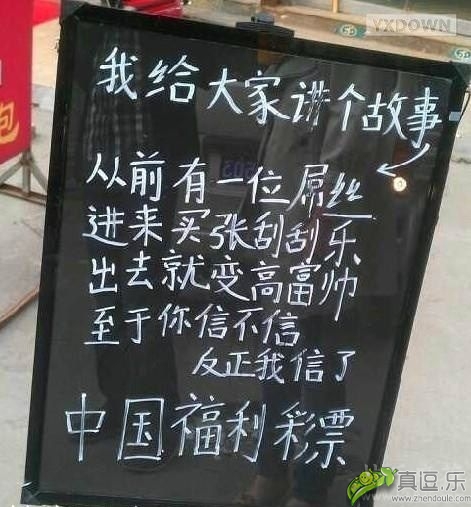 YXDOWN
我给大家讲个故事
从前有一位屌丝
进来买张刮刮乐
出去就变高富帅
至于你信不信
反正我信了
中国福利彩票
包
真逗.乐
www.zhendoule.com